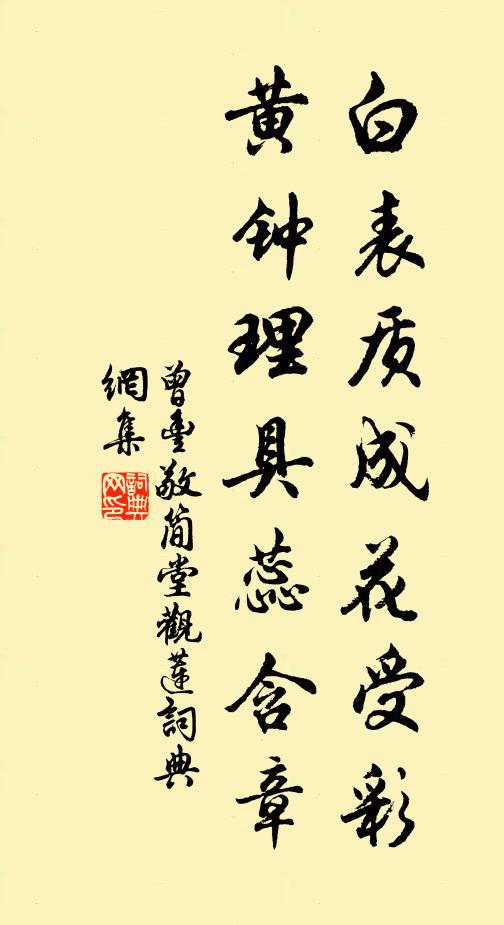 白表质成花受彩
黄钟理具蕊含章
曾丰敬简堂观莲詞典
網集
詞典
网印